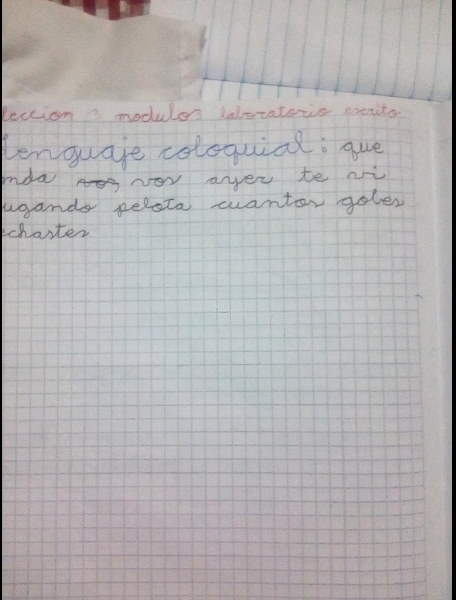 leccion 3 modulo laboratorio escrito
Lenguaje coloquial: que
onda vos ayer te vi
jugando pelota cuantos goles
echastes